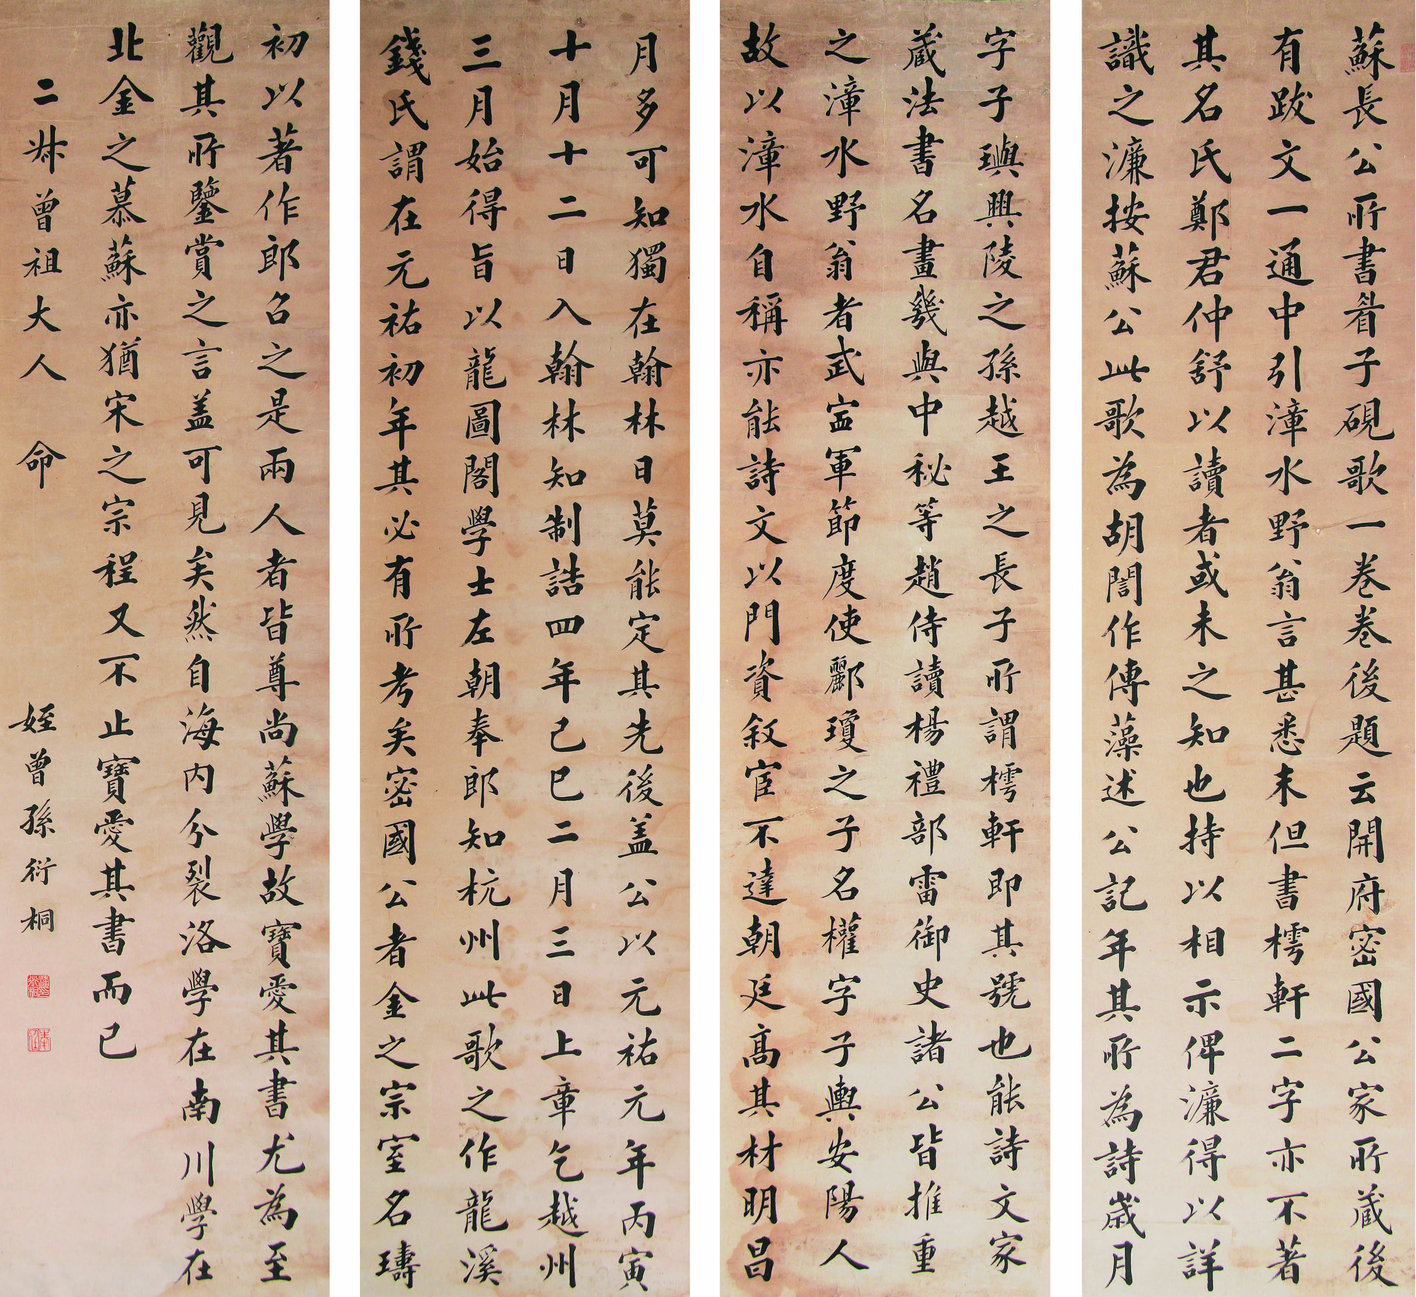 蘇長公所書眉子硯歌一卷卷後題云開府密國公家所蔵後
有跋文一通中引漳水野翁言甚悉末但書樗軒二字亦不著
其名氏鄭君仲舒以讀者或未之知也持以相示俾濂得以詳
識之濂按蘇公此歌為胡誾作傳藻述公記年其所為詩歲月
字子璵興陵之孫越王之長子所謂樗軒即其號也能詩文家
蔵法書名畫幾與中秘等趙侍讀楊禮部雷御史諸公皆推重
之漳水野翁者武寍軍節度使酈瓊之子名權字子輿安陽人
故以漳水自稱亦能詩文以門資敘宦不達朝廷高其材明昌
月多可知獨在翰林日莫能定其先後盖公以元祐元年丙寅
十月十二日入翰林知制誥四年己巳二月三日上章乞越州
三月始得旨以龍圖閣學士左朝奉郎知杭州此歌之作龍溪
錢氏謂在元祐初年其必有所考矣密國公者金之宗室名璹
初以著作郎召之是兩人者皆尊尚蘇學故寶愛其書尤為至
觀其所鑒賞之言盖可見矣然自海内分裂洛學在南川學在
北金之慕蘇亦猶宋之宗程又不止寶愛其書而已
二叔曾祖大人 命
姪曾孫衍桐